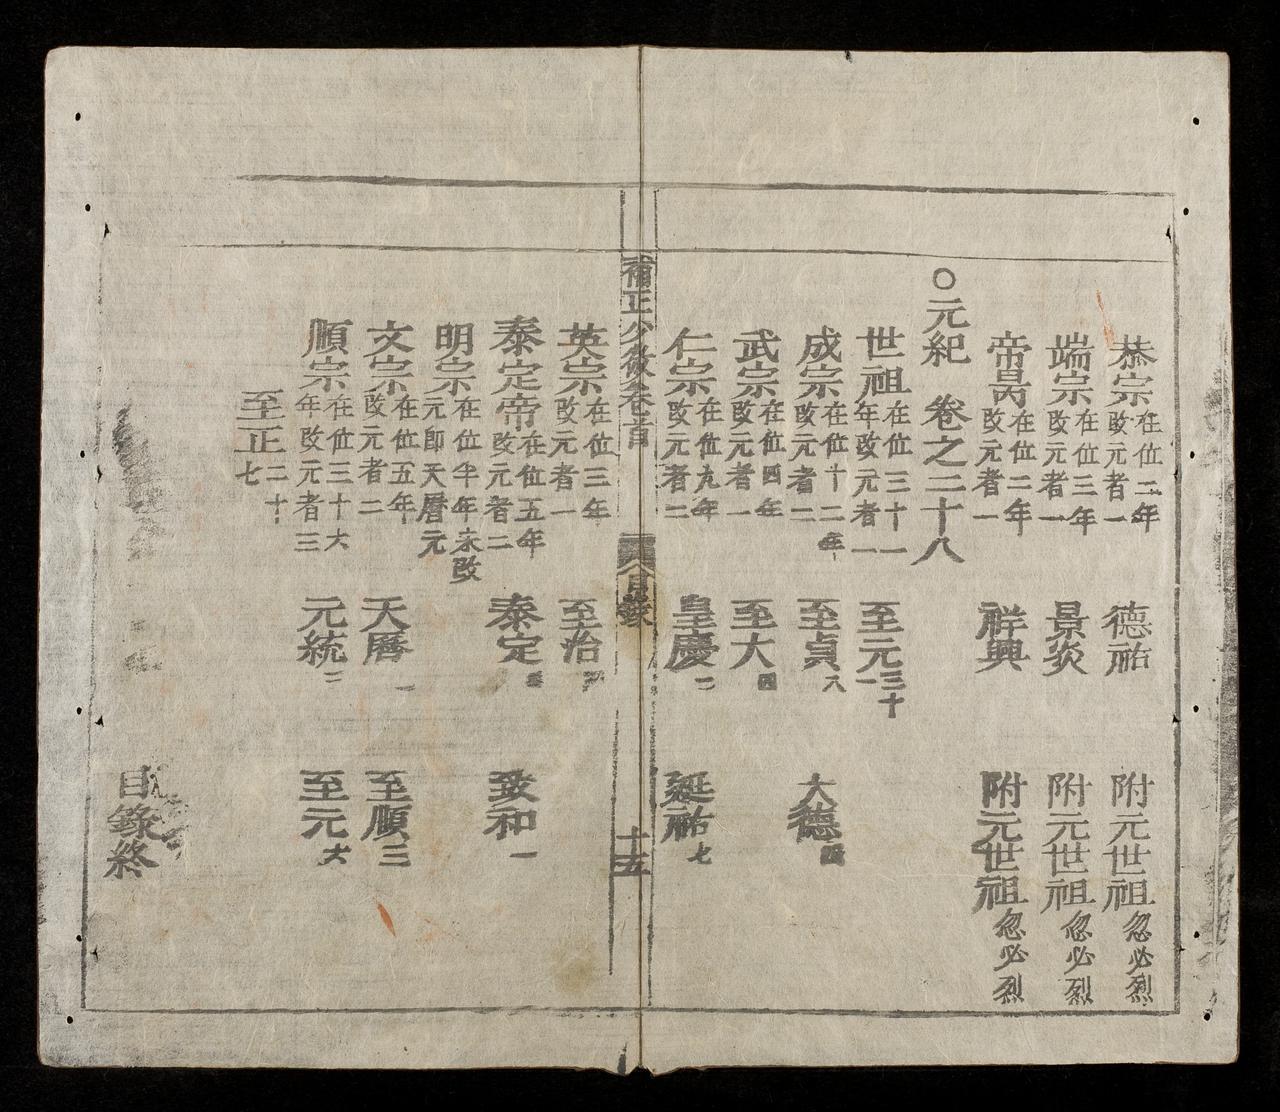 恭宗在位二年改元者一 德祐 附元世祖忽必烈
端宗在位三年改元者一 景炎 附元世祖忽必烈
帝昺在位二年改元者一 祥興 附元世祖忽必烈
○元紀 卷之二十八
世祖在位三十一年改元者一 至元三十一
成宗在位十二年改元者二 至貞八 大德四
武宗在位四年改元者一 至大四
仁宗在位九年改元者二 皇慶二 延祐七
補正少微卷首 目錄 十五
英宗在位三年改元者一 至治
泰定帝在位五年改元者二 泰定 致和一
明宗在位半年未改元即天曆元
文宗在位五年改元者二 天曆一 至順三
順宗在位三十六年改元者三 元統二 至元六
至正二十七
目錄終